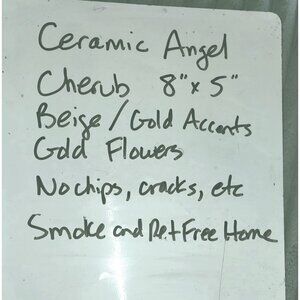 Ceramic Angel
Cherub 8" x 5"
Beige / Gold Accents
Gold Flowers
No chips, cracks, etc
Smoke and Pet Free Home